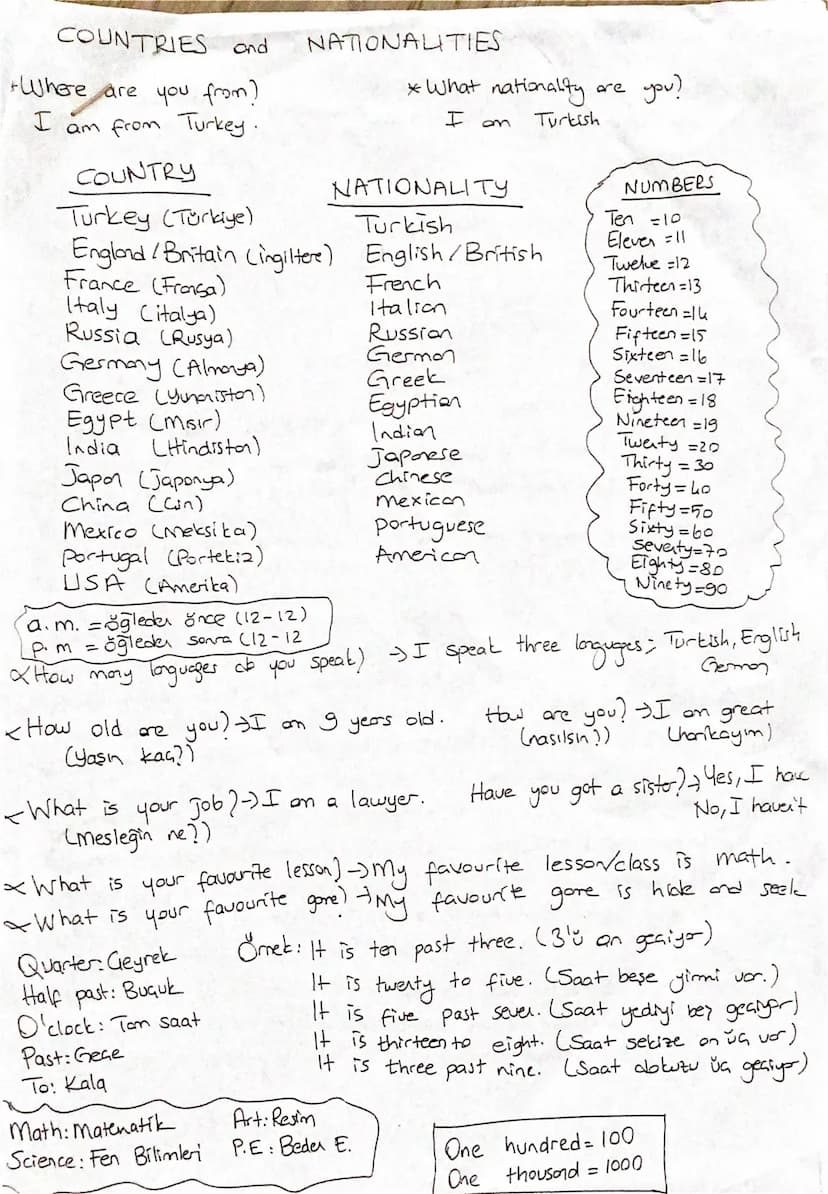 COUNTRIES and NATIONALITIES
*Where are you from?
I am from Turkey.
*What nationality are you?
I am Turkish
COUNTRY
Turkey (Türkiye)
England / Britain (İngiltere)
France (Fransa)
Italy (italya)
Russia (Rusya)
Germany (Almanya)
Greece (Yunanistan)
Egypt (Mısır)
India (Hindistan)
Japan (Japonya)
China (Çin)
Mexico (Meksika)
Portugal (Portekiz)
USA (Amerika)
NATIONALITY
Turkish
English / British
French
Italian
Russian
German
Greek
Egyptian
Indian
Japanese
Chinese
Mexican
Portuguese
American
NUMBERS
Ten =10
Eleven =11
Twelve =12
Thirteen =13
Fourteen =14
Fifteen =15
Sixteen =16
Seventeen =17
Eighteen =18
Nineteen =19
Twenty =20
Thirty = 30
Forty = 40
Fifty =50
Sixty =60
Seventy=70
Eighty =80
Ninety =90
a.m. = öğleden önce (12-12)
p.m = öğleden sonra (12-12
*How many languages do you speak? → I speak three languages; Turkish, English
German
*How old are you? → I am 9 years old.
(Yaşın kaç?)
How are you? → I am great
(nasılsın?) (harikayım)
*What is your job? → I am a lawyer.
(mesleğin ne?)
Have you got a sister? → Yes, I have
No, I haven't
*What is your favourite lesson? → My favourite lesson/class is math.
*What is your favourite game? → My favourite game is hide and seek
Quarter: Çeyrek
Half past: Buçuk
O'clock: Tam saat
Past: Geçe
To: Kala
Örnek: It is ten past three. (3'ü on geçiyor)
It is twenty to five. (Saat beşe yirmi var.)
It is five past seven. (Saat yediyi beş geçiyor)
It is thirteen to eight. (Saat sekize on üç var)
It is three past nine. (Saat dokuzu üç geçiyor)
Math: Matematik
Art: Resim
Science: Fen Bilimleri
P.E: Beden E.
One hundred = 100
One thousand = 1000